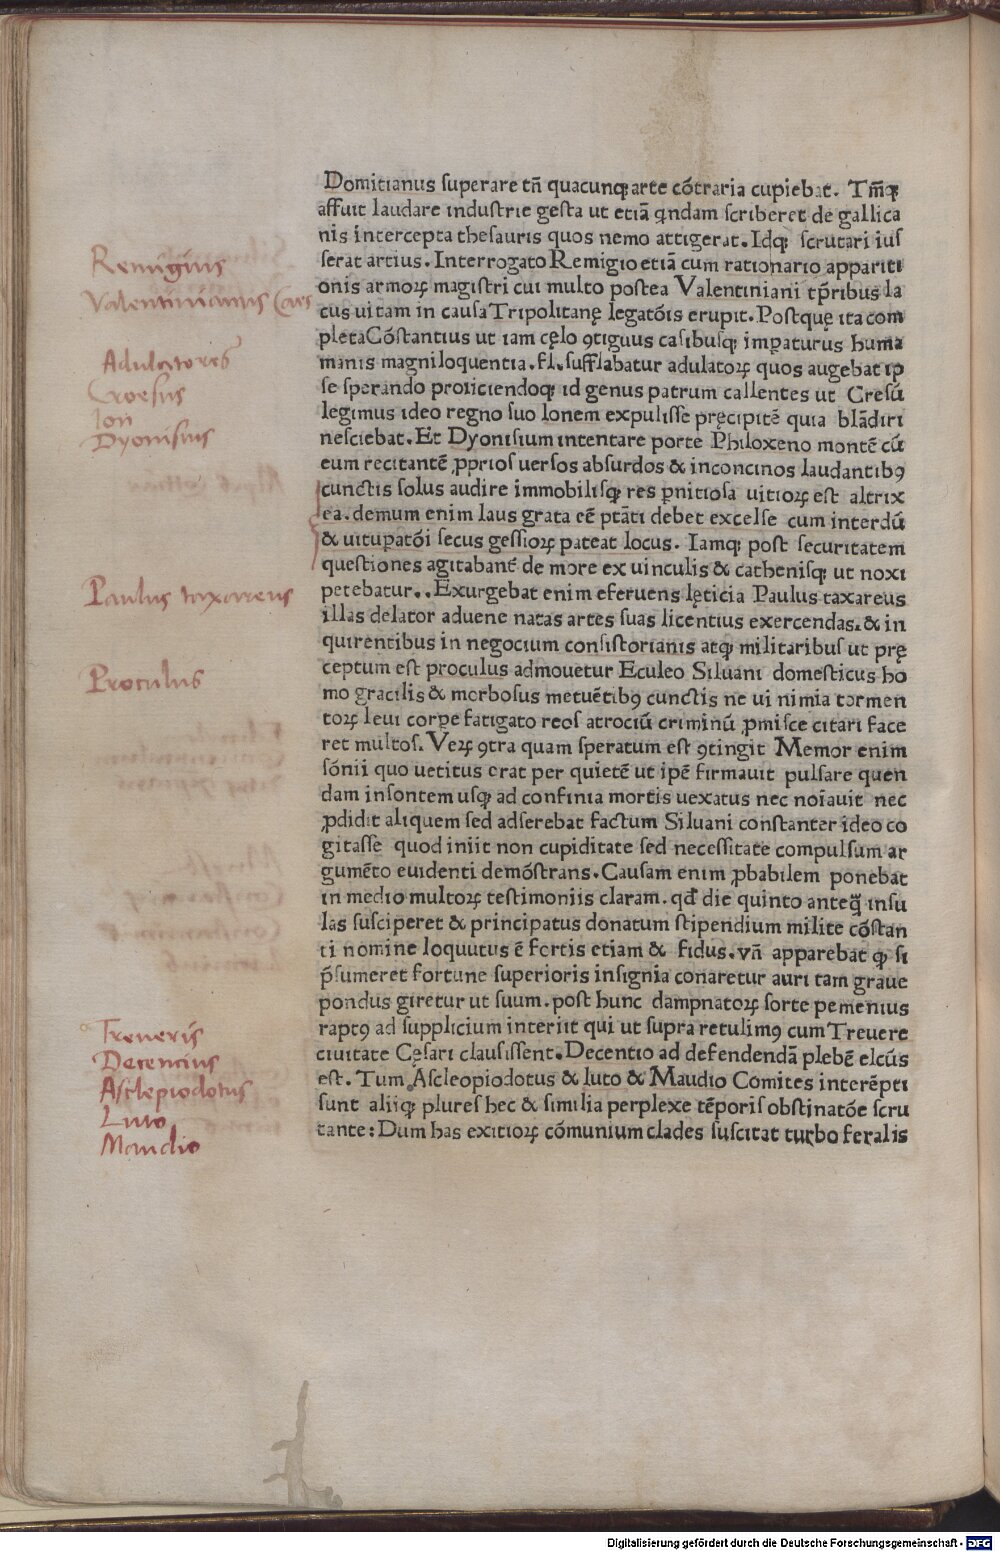 Domitianus superare tñ quacunqꝫ arte cõtraria cupiebat. Tm̃qꝫ
affuit laudare industrie gesta ut etiã q̃ndam scriberet de gallica
nis intercepta thesauris quos nemo attigerat. Idqꝫ scrutari ius
serat artius. Interrogato Remigio etiã cum rationario appariti
onis armoꝝ magistri cui multo postea Valentiniani tp̃ribus la
cus uitam in causa Tripolitanę legatõis erupit. Postquę ita com
pleta Cõstantius ut iam cęlo ꝯtiguus casibusqꝫ imꝑaturus huma
manis magniloquentia. fl. sufflabatur adulatoꝝ quos augebat ip
se sperando proiiciendoqꝫ id genus patrum callentes ut Cresũ
legimus ideo regno suo Ionem expulisse pręcipitẽ quia blãdiri
nesciebat. Et Dyonisium intentare porte Philoxeno montẽ cũ
eum recitantẽ ꝓprios uersos absurdos & inconcinos laudantibꝰ
cunctis solus audire immobilisqꝫ res ꝑnitiosa uitioꝝ est altrix
ea. demum enim laus grata eẽ ptãti debet excelse cum interdũ
& uituꝑatõi secus gessioꝝ pateat locus. Iamqꝫ post securitatem
questiones agitabant̃ de more ex uinculis & cathenisqꝫ ut noxi
petebatur.. Exurgebat enim eferuens lęticia Paulus taxareus
illas delator aduene natas artes suas licentius exercendas. & in
quirentibus in negocium consistorianis atqꝫ militaribus ut prę
ceptum est proculus admouetur Eculeo Siluani domesticus ho
mo gracilis & morbosus metuẽtibꝰ cunctis ne ui nimia tormen
toꝝ leui corpe fatigato reos atrociũ criminũ ꝓmisce citari face
ret multos. Veꝝ ꝯtra quam speratum est ꝯtingit Memor enim
sõnii quo uetitus erat per quietẽ ut ipẽ firmauit pulsare quen
dam insontem usqꝫ ad confinia mortis uexatus nec noĩauit nec
ꝓdidit aliquem sed adserebat factum Siluani constanter ideo co
gitasse quod iniit non cupiditate sed necessitate compulsum ar
gumẽto euidenti demõstrans. Causam enim ꝓbabilem ponebat
in medio multoꝝ testimoniis claram. qđ die quinto anteq̃ insu
las susciperet & principatus donatum stipendium milite cõstan
ti nomine loquutus ẽ fortis etiam & fidus. vñ apparebat qꝫ si
p̃sumeret fortune superioris insignia conaretur auri tam graue
pondus giretur ut suum. post hunc dampnatoꝝ sorte pemenius
raptꝰ ad supplicium interiit qui ut supra retulimꝰ cum Treuere
ciuitate Cęsari clausissent. Decentio ad defendendã plebẽ elcũs
est. Tum Ascleopiodotus & luto & Maudio Comites interẽpti
sunt aliiqꝫ plures hec & similia perplexe tẽporis obstinatõe scru
tante: Dum has exitioꝝ cõmunium clades suscitat turbo feralis
Remigius
Valentinianus Caes
Adulatores
Croesus
Ion
Dyonisius
Paulus taxareus
Proculus
Treueris
Decencius
Asclepiodotus
Luto
Maudio
Digitalisierung gefördert durch die Deutsche Forschungsgemeinschaft - DFG